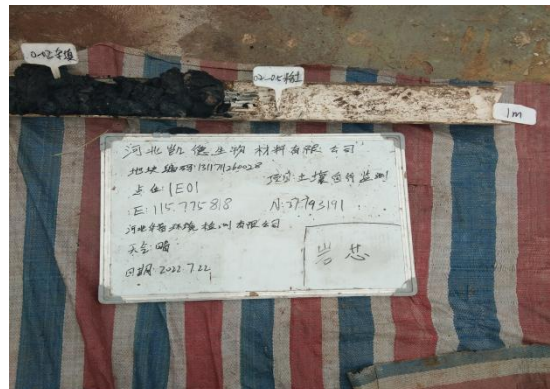 0-0.2杂填
0.2-0.5粉土
1m
河北凯德生物材料有限公司
地块编码:131171260028
点位:1E01 项目:土壤自行监测
E:115.775818 N:37.793191
环境检测有限公司
天气:晴
日期:2022.7.22
岩芯